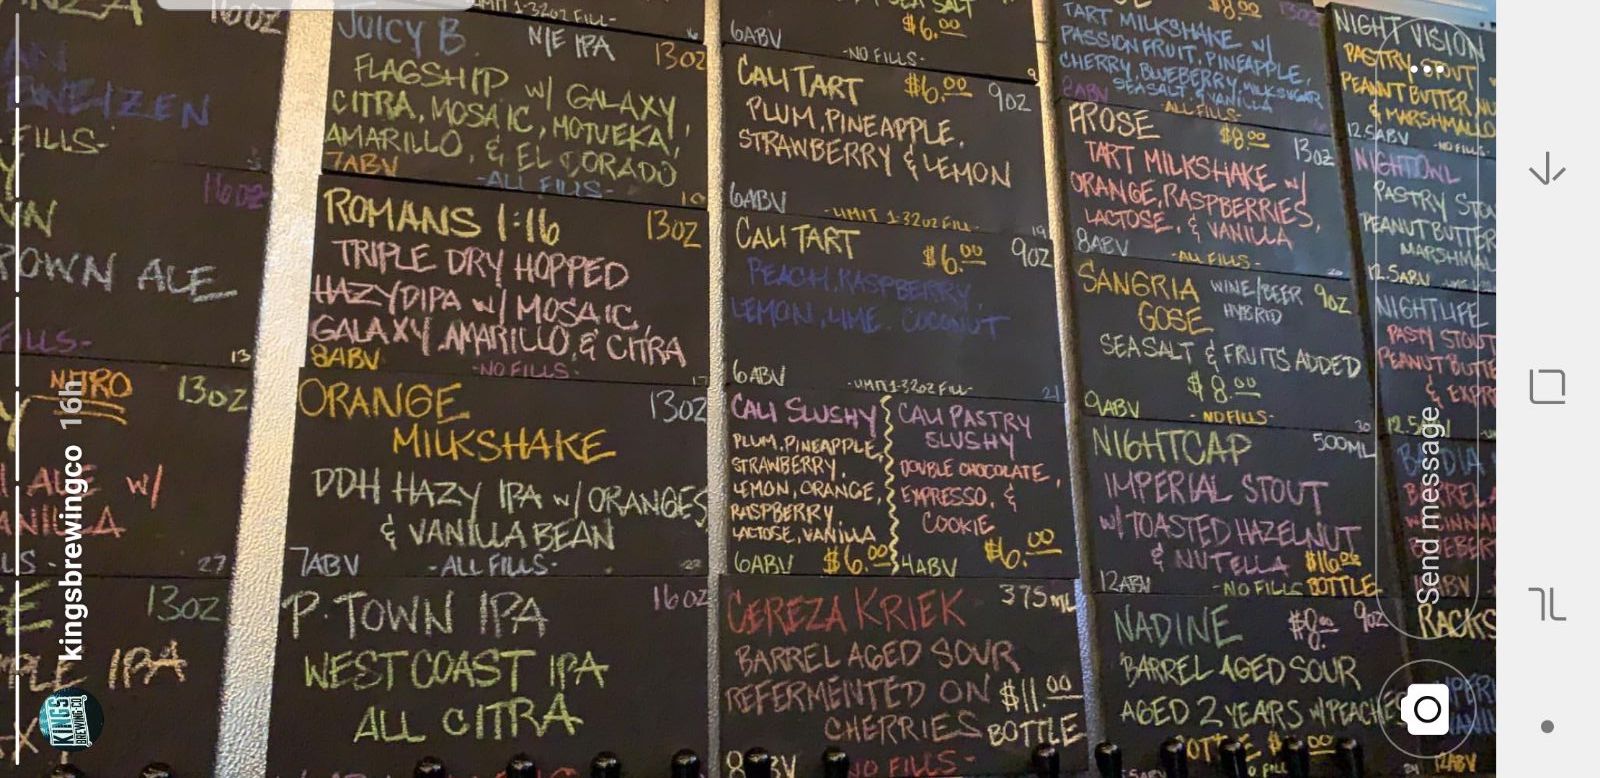 16OZ
FILLS-
16OZ
OWN ALE
FILLS-
13
NITRO
13OZ
ALE W/
27
13OZ
IPA
LIMIT 1-32OZ FILL-
JUICY B.
N/E IPA
13OZ
FLAGSHIP W/ GALAXY
CITRA, MOSAIC, MOTUEKA,
AMARILLO, & EL DORADO
7ABV
-ALL FILLS-
ROMANS 1:16
13OZ
TRIPLE DRY HOPPED
HAZY DIPA W/ MOSAIC,
GALAXY, AMARILLO, & CITRA
8ABV
-NO FILLS-
ORANGE
13OZ
MILKSHAKE
DDH HAZY IPA W/ ORANGES
& VANILLA BEAN
7ABV
-ALL FILLS-
P-TOWN IPA
16OZ
WEST COAST IPA
ALL CITRA
SEA SALT
$6.00
6ABV
-NO FILLS-
9
CALI TART
$6.00
9OZ
PLUM, PINEAPPLE,
STRAWBERRY & LEMON
6ABV
-LIMIT 1-32OZ FILL-
19
CALI TART
$6.00
9OZ
PEACH, RASPBERRY,
LEMON, LIME, COCONUT
6ABV
-LIMIT 1-32OZ FILL-
21
CALI SLUSHY
PLUM, PINEAPPLE,
STRAWBERRY,
LEMON, ORANGE,
RASPBERRY
LACTOSE, VANILLA
6ABV
$6.00
CALI PASTRY
SLUSHY
DOUBLE CHOCOLATE,
EXPRESSO, &
COOKIE
4ABV
$6.00
CEREZA KRIEK
375ML
BARREL AGED SOUR
REFERMENTED ON
$11.00
CHERRIES
BOTTLE
NO FILLS-
$8.00
13OZ
TART MILKSHAKE W/
PASSIONFRUIT, PINEAPPLE,
CHERRY, BLUEBERRY, MILK SUGAR
SEA SALT & VANILLA
8ABV
-ALL FILLS-
FROSE
$8.00
13OZ
TART MILKSHAKE W/
ORANGE, RASPBERRIES,
LACTOSE, & VANILLA
8ABV
-ALL FILLS-
SANGRIA
WINE/BEER
9OZ
GOSE
HYBRID
SEA SALT & FRUITS ADDED
$8.00
9ABV
-NO FILLS-
30
NIGHTCAP
500ML
IMPERIAL STOUT
W/ TOASTED HAZELNUT
& NUTELLA
12ABV
-NO FILLS
BOTTLE
NADINE
9OZ
BARREL AGED SOUR
AGED 2 YEARS W/ PEACHES
NIGHT VISION
PASTRY STOUT
PEANUT BUTTER
& MARSHMALLO
12.5ABV
-NO FILLS-
NIGHTOWL
PASTRY STOU
PEANUT BUTTER
MARSHMAL
12.5ABV
NIGHTLIFE
PASTY STOUT
PEANUT BUTTE
& EXPR
RACKS
12ABV
kingsbrewingco 16h
KINGS
BREWING CO
Send message